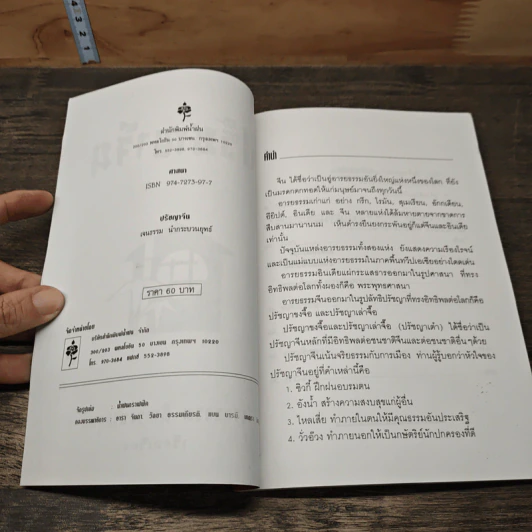 สำนักพิมพ์น้ำฝน
ศาสนา
ISBN 974-7273-97-7
ปรัชญาจีน
เจนธรรม นำกระบวนยุทธ์
ราคา 60 บาท
จัดจำหน่ายโดย
บริษัทสำนักพิมพ์น้ำฝน จำกัด
คำนำ
จีน ได้ชื่อว่าเป็นอู่อารยธรรมอันยิ่งใหญ่แห่งหนึ่งของโลก ที่ยัง
เป็นมรดกตกทอดให้แก่มนุษย์มาจนถึงทุกวันนี้
อารยธรรมเก่าแก่ อย่าง กรีก, โรมัน, สุเมเรียน, อักกเดียน,
อียิปต์, อินเดีย และ จีน หลายแห่งได้ล้มหายตายจากขาดการ
สืบสานมานานนม เห็นดำรงยืนยงกระพันอยู่ก็แต่จีนและอินเดีย
เท่านั้น
ปัจจุบันแหล่งอารยธรรมทั้งสองแห่ง ยังแสดงความเรืองโรจน์
และเป็นแม่แบบแห่งอารยธรรมในภาคพื้นทวีปเอเชียอย่างโดดเด่น
อารยธรรมอินเดียแผ่กระแสธารออกมาในรูปศาสนา ที่ทรง
อิทธิพลต่อโลกทั้งมองก็คือ พระพุทธศาสนา
อารยธรรมจีนออกมาในรูปลัทธิปรัชญาที่ทรงอิทธิพลต่อโลกก็คือ
ปรัชญาขงจื้อและปรัชญาเล่าจื้อ
ปรัชญาขงจื้อและปรัชญาเล่าจื้อ (ปรัชญาเต๋า) ได้ชื่อว่าเป็น
ปรัชญาจีนหลักที่มีอิทธิพลต่อชนชาติจีนและต่อชนชาติอื่นๆด้วย
ปรัชญาจีนเน้นจริยธรรมกับการเมือง ท่านผู้รู้บอกว่าหัวใจของ
ปรัชญาจีนอยู่ที่คำเหล่านี้คือ
1. ซิวกี้ ฝึกฝนอบรมตน
2. อังน้ำ สร้างความสงบสุขแก่ผู้อื่น
3. ไหลเสี่ย ทำภายในตนให้มีคุณธรรมอันประเสริฐ
4. วั่วอ๊วง ทำภายนอกให้เป็นกษัตริย์นักปกครองที่ดี